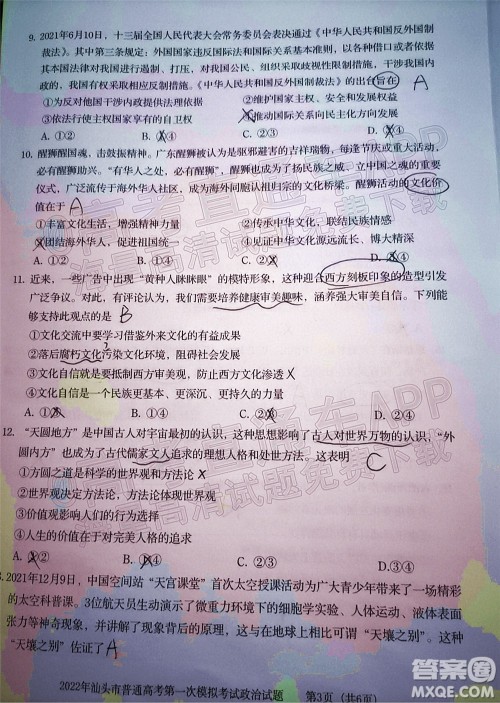 9. 2021年6月10日，十三届全国人民代表大会常务委员会表决通过《中华人民共和国反外国制
裁法》。其中第三条规定：外国国家违反国际法和国际关系基本准则，以各种借口或者依据
其本国法律对我国进行遏制、打压，对我国公民、组织采取歧视性限制措施，干涉我国内
政的，我国有权采取相应反制措施。《中华人民共和国反外国制裁法》的出台旨在 A
①为反对他国干涉内政提供法律依据 ②维护国家主权、安全和发展权益
③依法行使主权国家享有的自卫权 ④推动国际关系向民主化方向发展
A. ①② B. ①④ C. ②③ D. ③④
10. 醒狮醒国魂，击鼓振精神。广东醒狮被认为是驱邪避害的吉祥瑞物，每逢节庆或重大活动，必
有醒狮助兴。“有华人之处，必有醒狮”，这也成为了扬民族之威、立中国之魂的重要
仪式，广泛流传于海外华人社区，成为海外同胞认祖归宗的文化桥梁。醒狮活动的文化价
值在于 A
①丰富文化生活，增强精神力量 ②传承中华文化，联结民族情感
③团结海外华人，促进祖国统一 ④见证中华文化源远流长、博大精深
A. ①② B. ①③ C. ②④ D. ③④
11. 近来，一些广告中出现“黄种人眯眯眼”的模特形象，这种迎合西方刻板印象的造型引发
广泛争议。对此，有评论认为，我们需要培养健康审美趣味，涵养强大审美自信。下列能
够支持此观点的是 B
①文化交流中要学习借鉴外来文化的有益成果
②落后腐朽文化污染文化环境，阻碍社会发展
③文化自信就是抵制西方审美观，防止西方文化渗透 X
④文化自信是一个民族更基本、更深沉、更持久的力量
A. ①③ B. ②④ C. ②③ D. ①④
12. “天圆地方”是中国古人对宇宙最初的认识，这种思想影响了古人对世界万物的认识，“外
圆内方”也成为了古代儒家文人追求的理想人格和处世方法。这表明 C
①方圆之道是科学的世界观和方法论 X
②世界观决定方法论，方法论体现世界观
③价值观影响人们对事物的认识和评价
④人生的价值在于对完美人格的追求
A. ①② B. ①④ C. ②③ D. ③④
2021年12月9日，中国空间站“天宫课堂”首次太空授课活动为广大青少年带来了一场精彩
的太空科普课。3位航天员生动演示了微重力环境下的细胞学实验、人体运动、液体表面
张力等神奇现象，并讲解了现象背后的原理，这样的天地互动可谓
种“天壤之别”佐证了 A
2022年汕头市普通高考第一次模拟考试政治试题 第3页（共6页）
答案圈
MXQE.COM